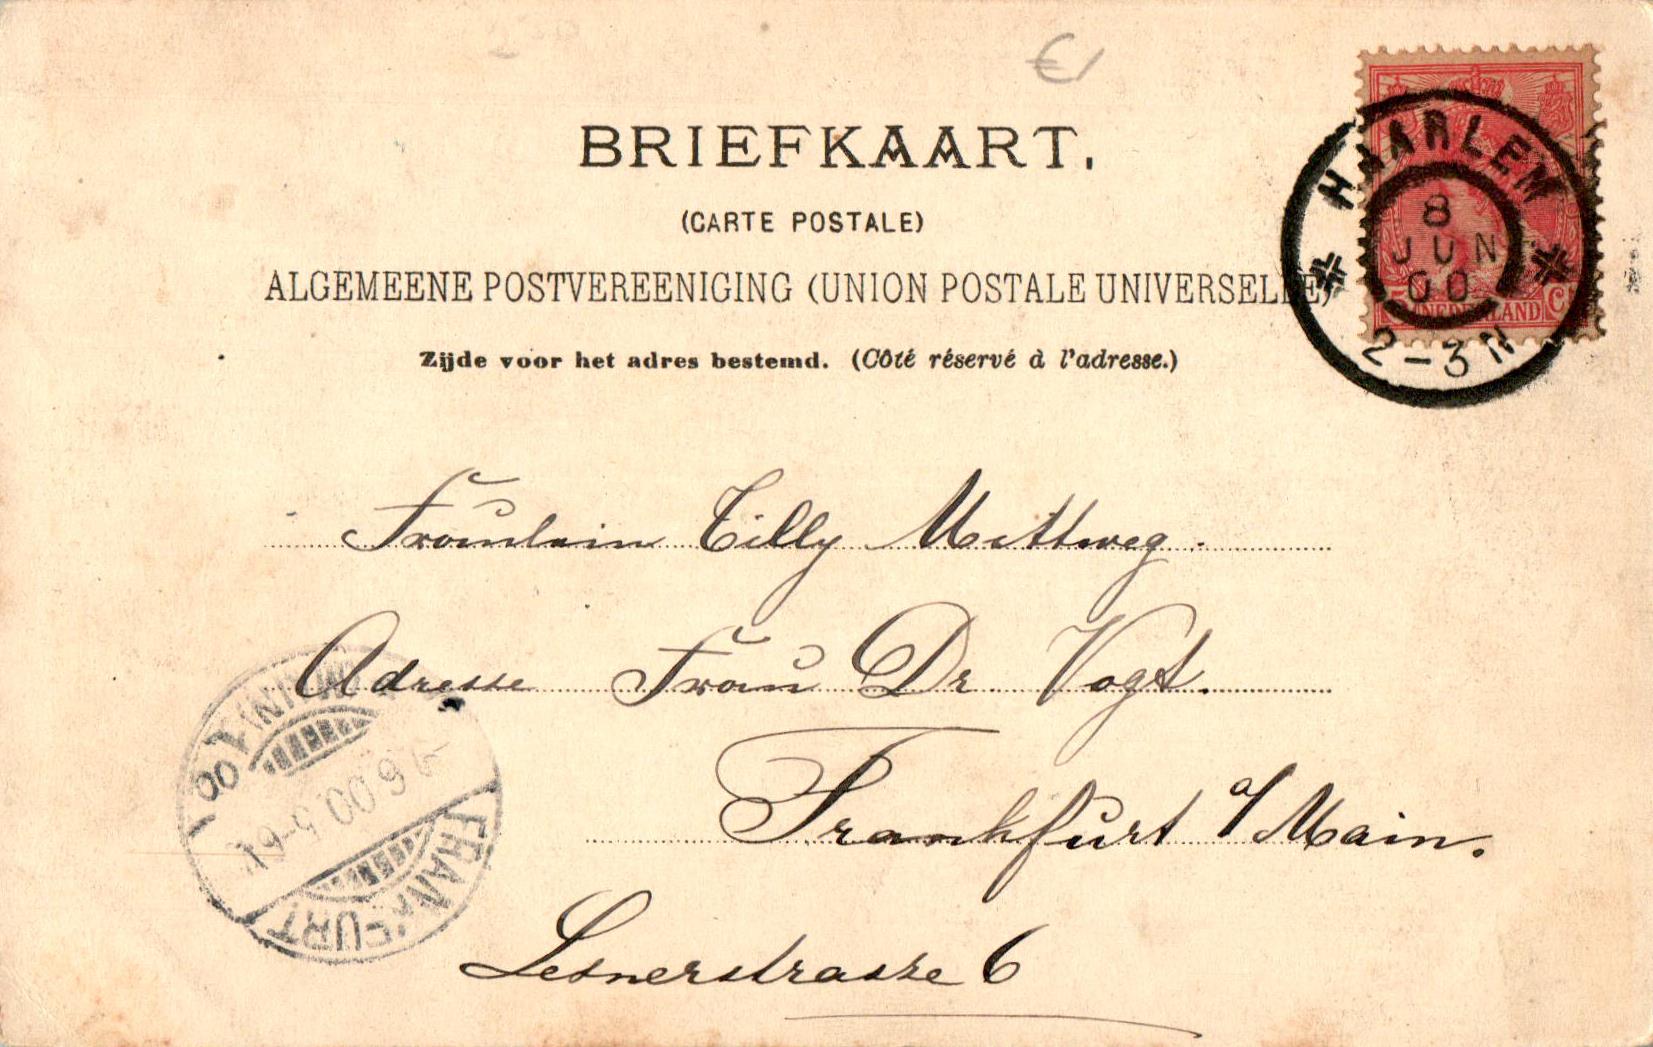 €1
BRIEFKAART.
(CARTE POSTALE)
ALGEMEENE POSTVEREENIGING (UNION POSTALE UNIVERSELLE)
Zijde voor het adres bestemd. (Côté réservé à l'adresse.)
HAARLEM
8
JUN
00
2-3N
NEDERLAND
Fräulein Tilly Mettweg.
Adresse Frau Dr. Vogt.
Frankfurt a/Main.
Lesnerstrasse 6
FRANKFURT (MAIN) 1
9 6 00 5-6N